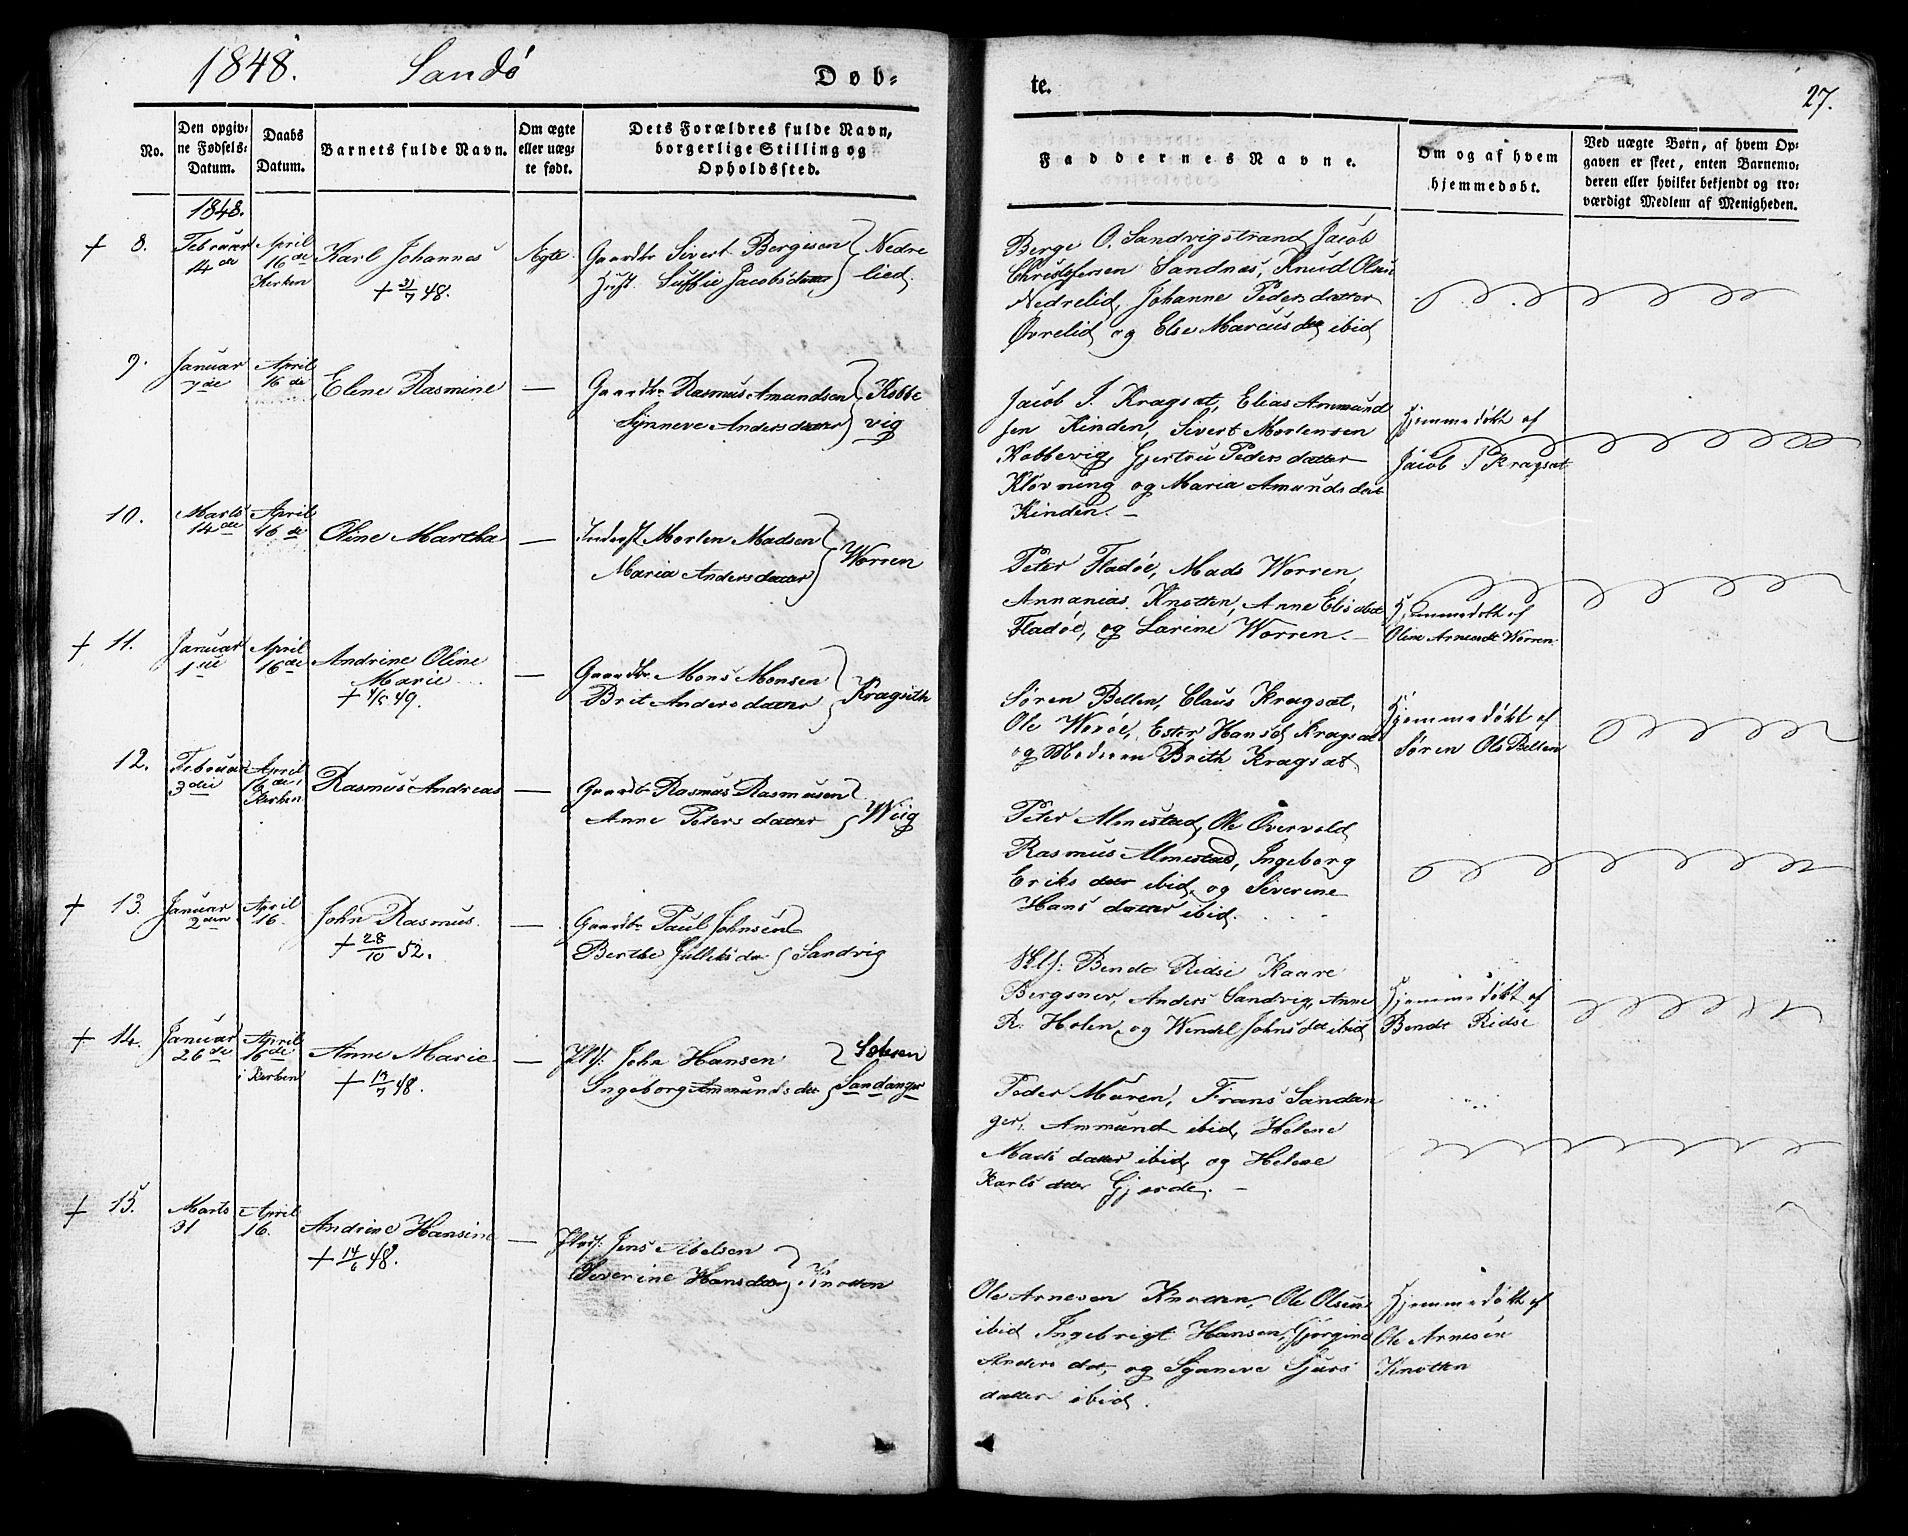 1848. Sandø Døb-
No.
Den opgiv-
ne Fødsels-
Datum.
Daabs
Datum.
Barnets fulde Navn.
Om ægte
eller uæg-
te født.
Dets Forældres fulde Navn,
borgerlige Stilling og
Opholdssted.
te. 27.
Faddernes Navne.
Om og af hvem
hjemmedøbt.
Ved uægte Børn, af hvem Op-
gaven er skeet, enten Barnemo-
deren eller hvilket bekjendt og tro-
værdigt Medlem af Menigheden.
1848.
+ 8. Februar April Karl Johannes Ægte. Gaardbr Sivert Bergesen Nedre
14de 16de + 31/7 48. Hust. Suffie Jacobsdatter lied.
Kirken
Berge O. Sandvigstrand Jacob
Christofersen Sandnæs, Knud Olsen
Nedrelid, Johanne Pedersdatter
Øvrelid og Else Marcusdtr ibid
9. Januar April Elene Rasmine — Gaardbr Rasmus Amundsen Kobbe
7de 16de Synneve Andersdatter vig
Jacob J. Kragsæt, Elias Ammund
sen Kinden, Sivert Mortensen
Kobbevig, Gjertru Pedersdatter
Kløvning og Maria Amundsdatt
Kinden. —
Hjemmedøbt af
Jacob J Kragsæt
10. Marts April Oline Martha — Inderst Morten Madsen Worren
14de 16de Maria Andersdatter
Peter Fladøe, Mads Worren,
Annanias Knotten, Anne Elisabet
Fladøe, og Larine Worren. —
Hjemmedøbt af
Oline Arnesdt Worren
+ 11. Januar April Andrine Oline — Gaardbr Mons Monsen Kragseth
1ste 16de Marie Brit Andersdatter
+ 4/5 49.
Søren Belten, Claus Kragsæt,
Ole Worøe, Ester Hansd Kragsæt
og Moderen Brith Kragsæt.
Hjemmedøbt af
Søren Ols Belten
12. Februar April Rasmus Andreas — Gaardbr Rasmus Rasmusen Wiig
3die 16de i Anne Petersdatter
Kirken
Peter Almestad, Ole Overvold
Rasmus Almestad, Ingeborg
Eriksdatter ibid, og Siverine
Hansdatter ibid.
+ 13. Januar April John Rasmus. — Gaardbr Paul Johnsen
2den 16. + 28/10 52. Berthe Julliksdr Sandvig
Bendt Ridsi Kaare
Bergsnev, Anders Sandvig, Anne
R. Holen, og Wendel Johnsdt ibid
Hjemmedøbt af
Bendt Ridsi
+ 14. Januar April Anne Marie — Pldf. John Hansen Sætren
26de 16de + 19/7 48. Ingeborg Ammundsdtr Sandanger
i Kirken
Peder Muren, Frans Sandan
ger, Ammund ibid, Helene
Madsdatter ibid, og Helene
Karlsdatter Gjerde. —
+ 15. Marts April Andrine Hansine — Pladf. Jens Abelsen
31 16. + 14/6 48. Severine Hansdatter Knotten
Ole Arnesen Knotten, Ole Olsen
ibid Ingebrigt Hansen, Gjørgine
Andersdt, og Synneve Sjurs
datter ibid.
Hjemmedøbt af
Ole Arnesen
Knotten